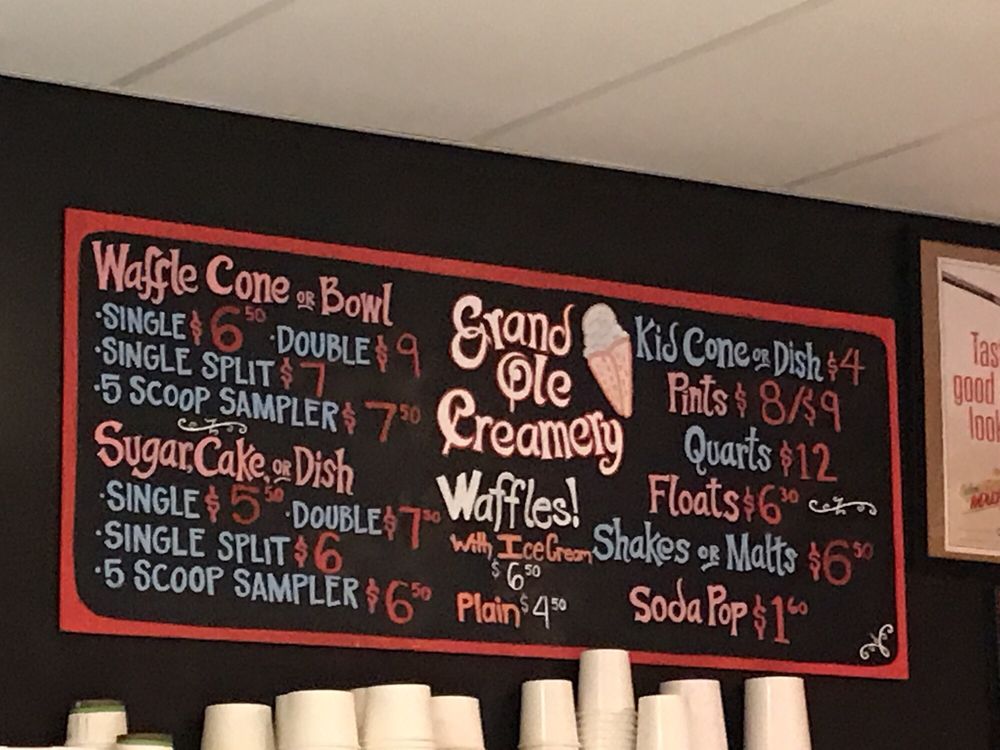 Waffle Cone or Bowl
·Single $6.50 ·Double $9
·Single Split $7
·5 Scoop Sampler $7.50
Sugar, Cake, or Dish
·Single $5.50 ·Double $7.50
·Single Split $6
·5 Scoop Sampler $6.50
Grand
Ole
Creamery
Waffles!
With Ice Cream
$6.50
Plain $4.50
Kid Cone or Dish $4
Pints $8/$9
Quarts $12
Floats $6.30
Shakes or Malts $6.50
Soda Pop $1.60
Tas
good
look